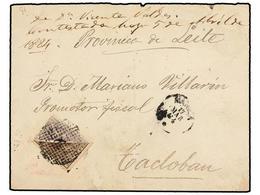 de Dn. Vicente Valdes.
contestada hoy 5 de Abril de
1884. Provincia de Leite
Sr. D. Mariano Villarin
Promotor fiscal
Tacloban